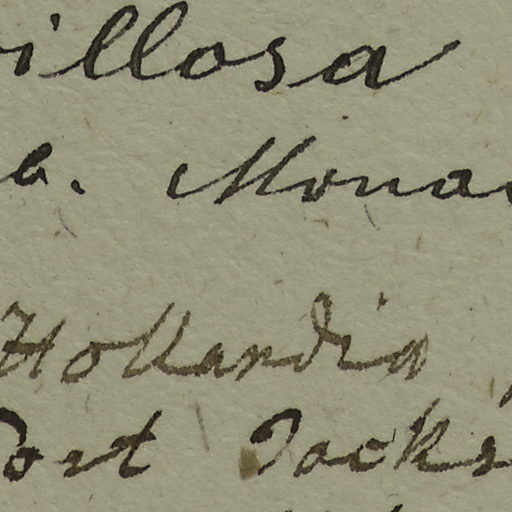 villosa
b. Mona
Hollandia
Port Jacks